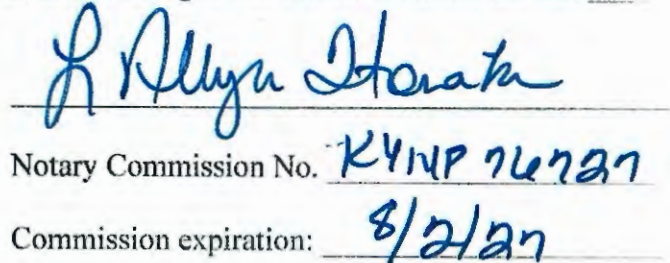 L Allyn
Notary Commission No. KYNP 76727
Commission expiration: 8/2/27